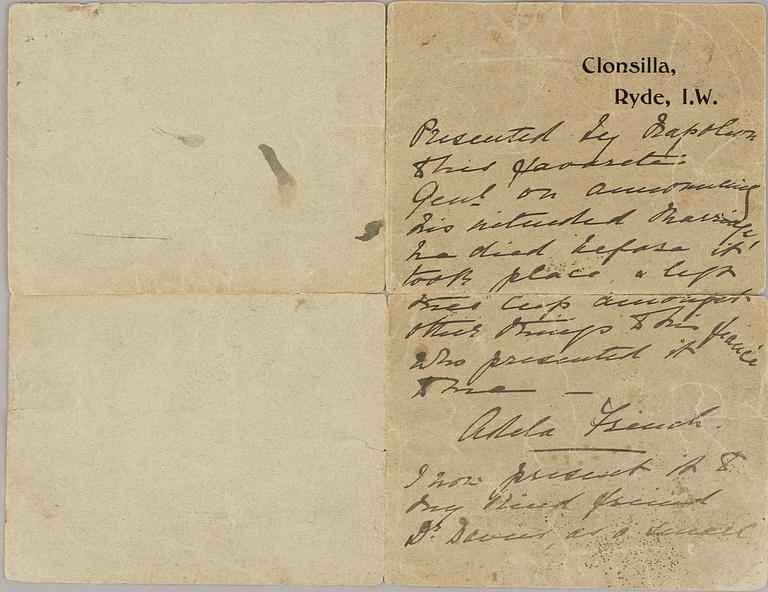 Clonsilla,
Ryde, I.W.
Presented by Napoleon
to his favorete:
Genl. on announcing
his intended marriage
he died before it
took place & left
this cup amongst
other things to his fiancée
who presented it
to me —
Adela French.
I now present it to
my kind friend
Dr. Davies, as a small